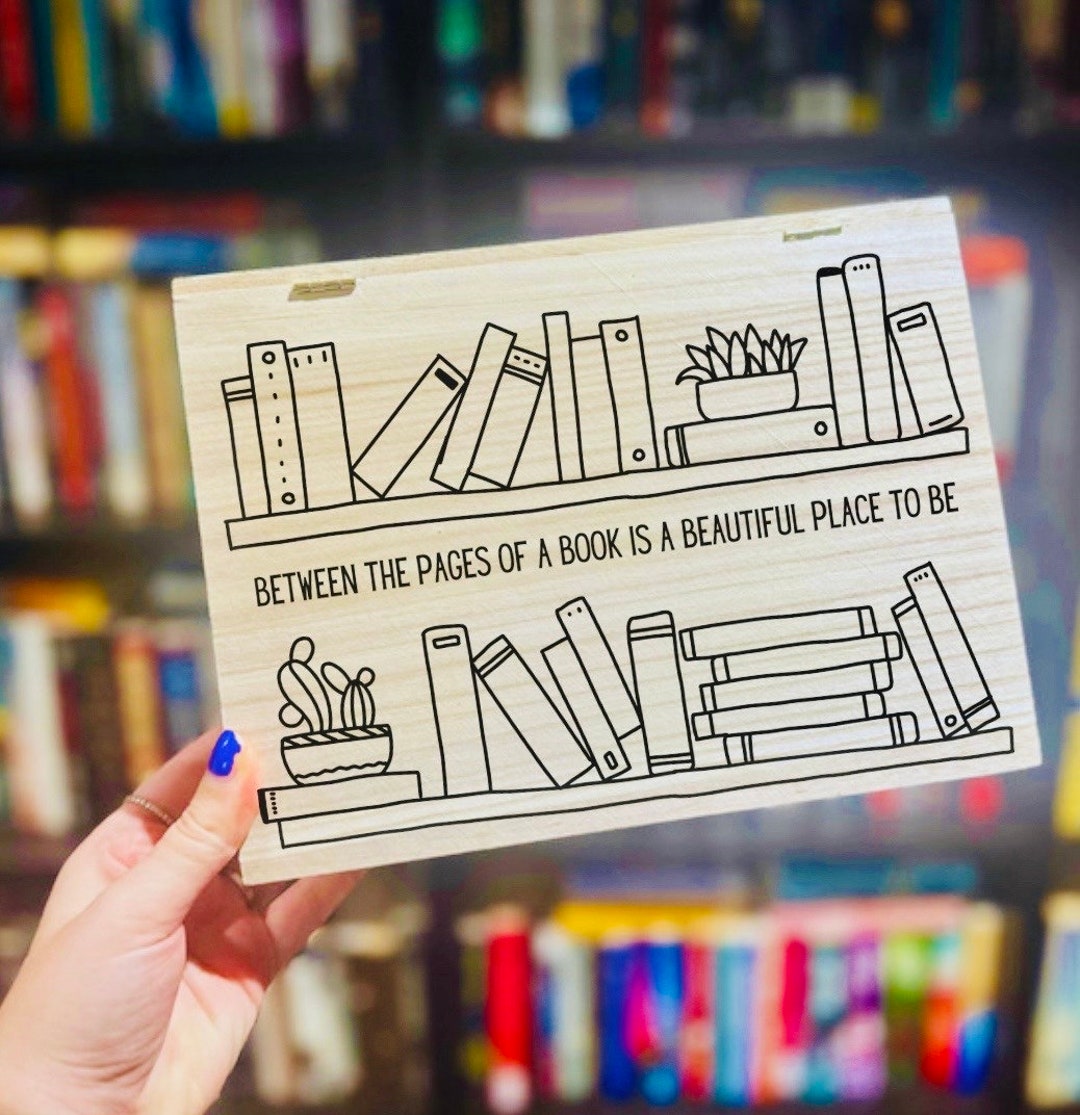 BETWEEN THE PAGES OF A BOOK IS A BEAUTIFUL PLACE TO BE